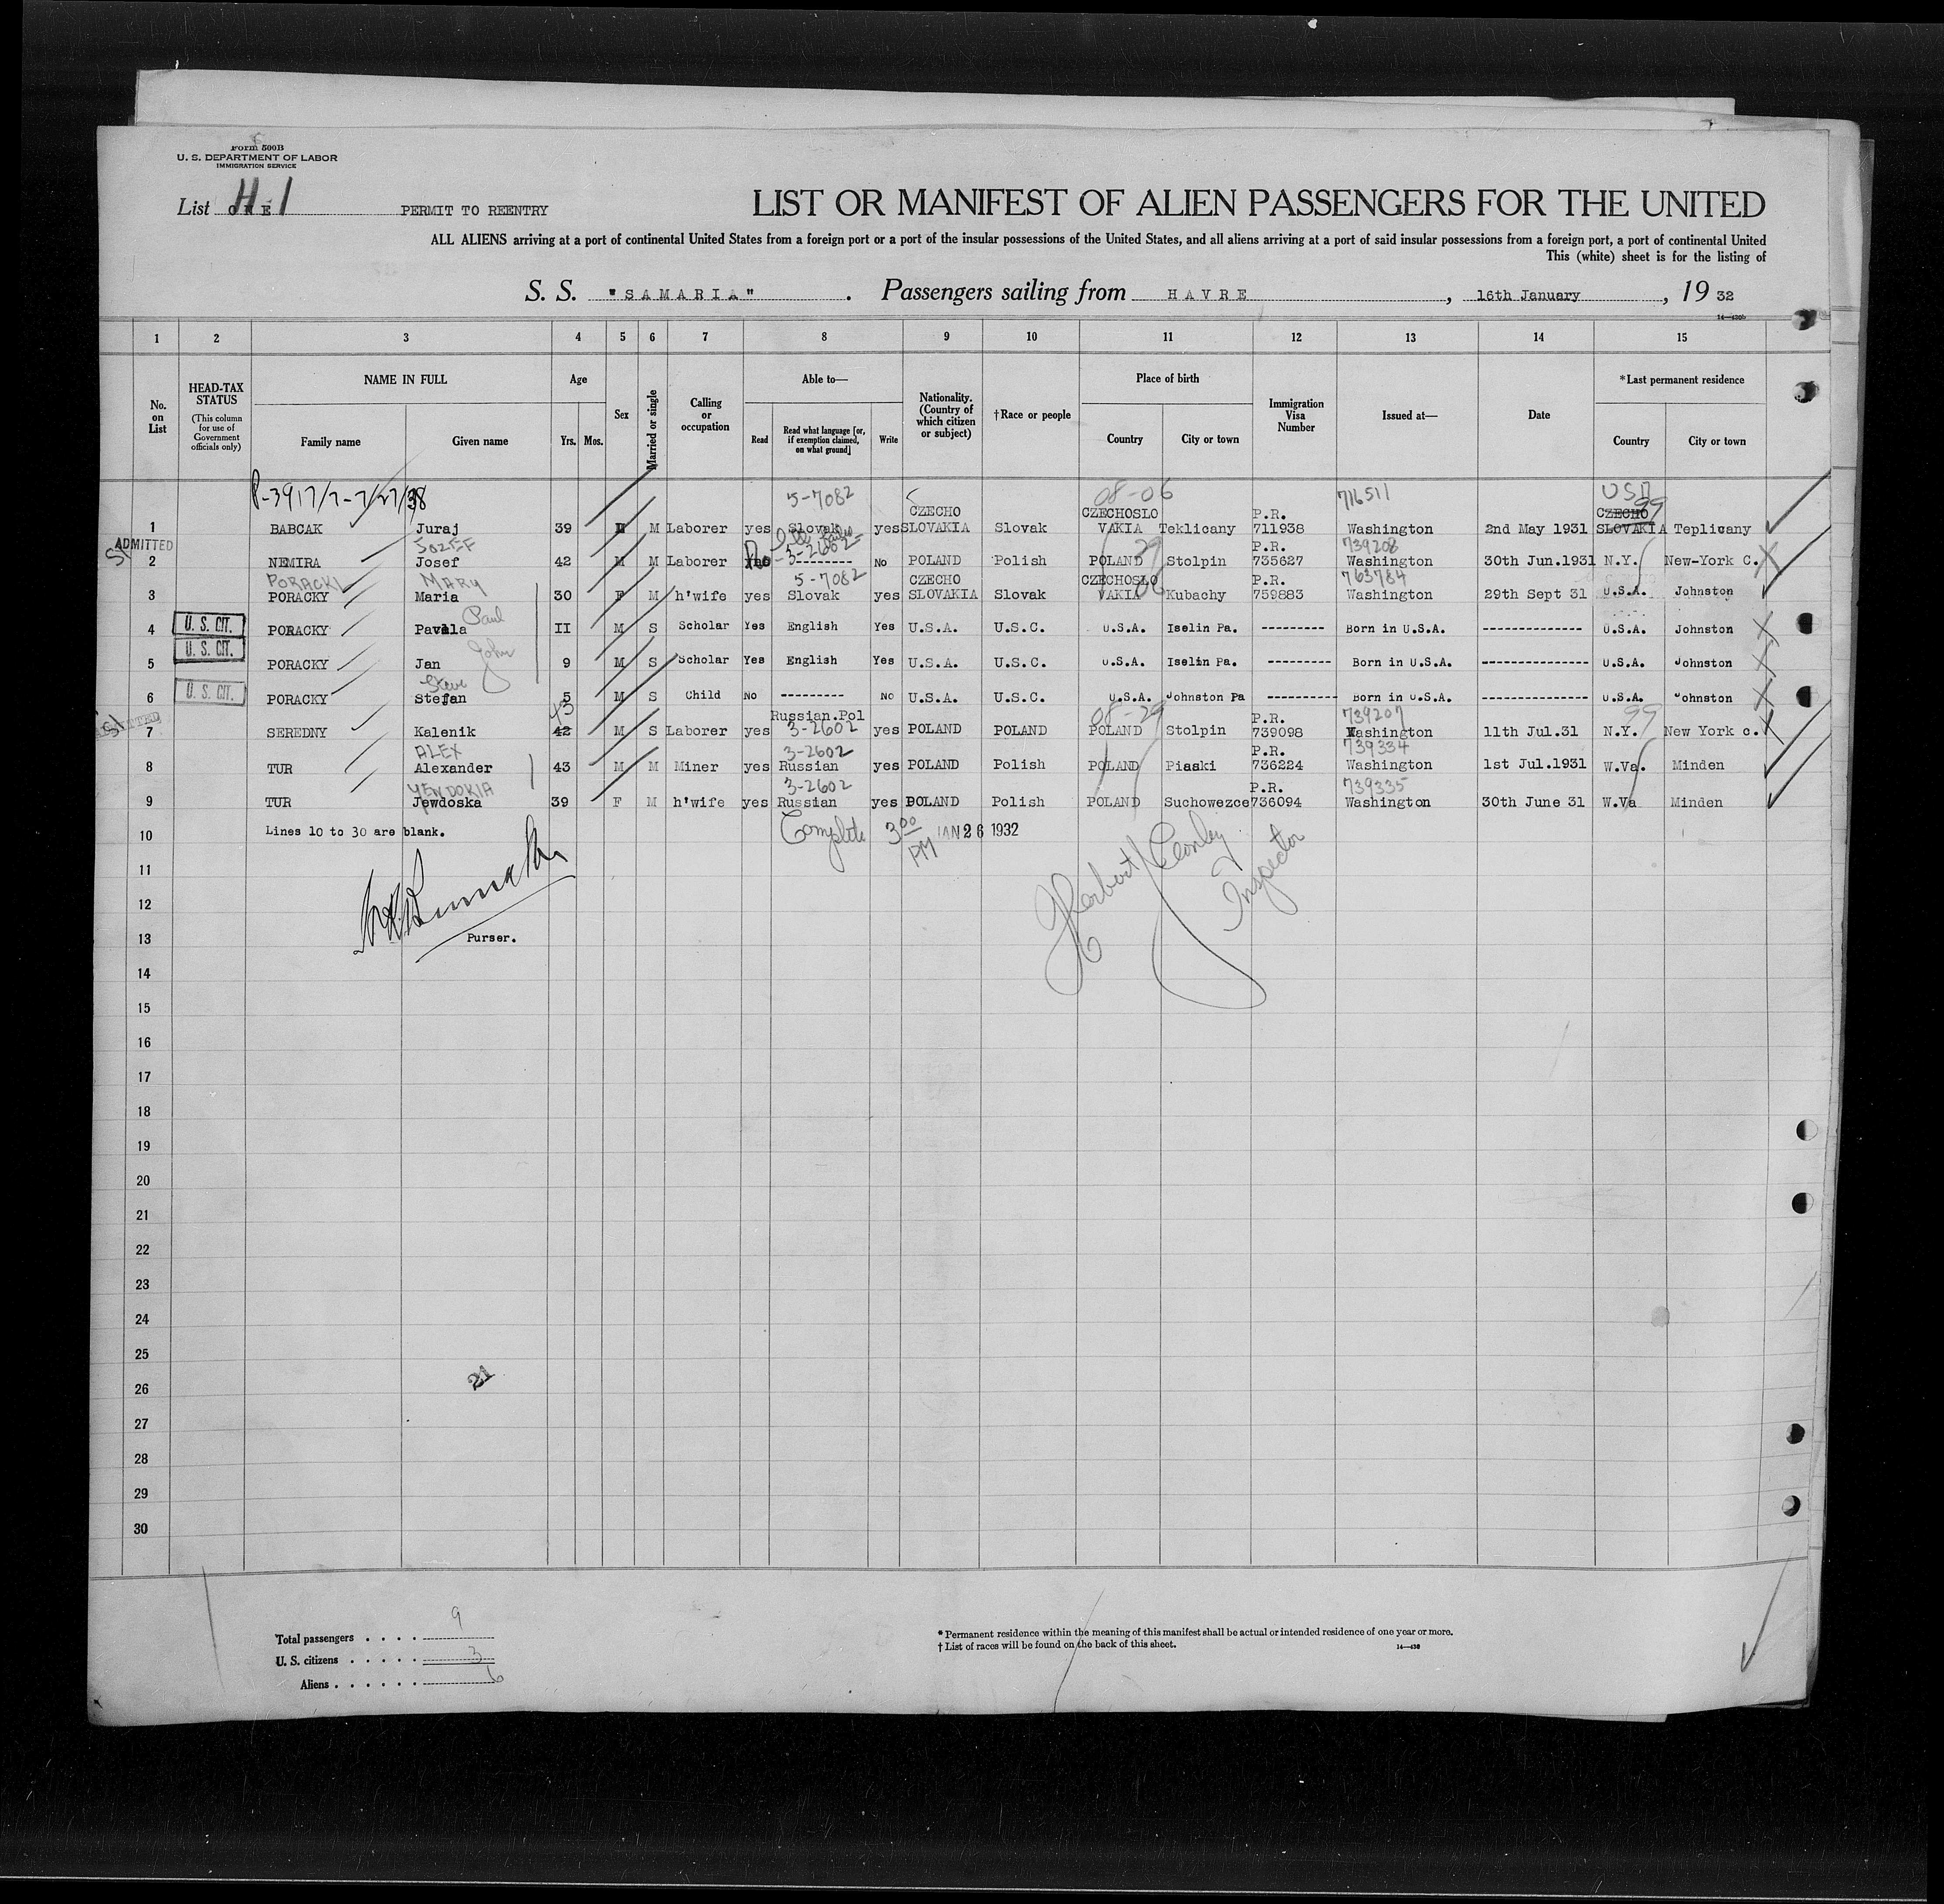 Form 500B
U. S. DEPARTMENT OF LABOR
IMMIGRATION SERVICE
List ONE H-1 PERMIT TO REENTRY
LIST OR MANIFEST OF ALIEN PASSENGERS FOR THE UNITED
ALL ALIENS arriving at a port of continental United States from a foreign port or a port of the insular possessions of the United States, and all aliens arriving at a port of said insular possessions from a foreign port, a port of continental United
This (white) sheet is for the listing of
S. S. "SAMARIA". Passengers sailing from HAVRE, 16th January, 19 32
1 2 3 4 5 6 7 8 9 10 11 12 13 14 15
No. on List
HEAD-TAX STATUS (This column for use of Government officials only)
NAME IN FULL Family name Given name
Age Yrs. Mos.
Sex
Married or single
Calling or occupation
Able to— Read Read what language [or, if exemption claimed, on what ground] Write
Nationality. (Country of which citizen or subject)
†Race or people
Place of birth Country City or town
Immigration Visa Number
Issued at—
Date
*Last permanent residence Country City or town
P-3917/7-7/27/38 5-7082 08-06 716511 USA
1 BABCAK Juraj 39 M M Laborer yes Slovak yes CZECHO SLOVAKIA Slovak CZECHOSLO VAKIA Teklicany P.R. 711938 Washington 2nd May 1931 CZECHO SLOVAKIA 99 Teplicany
ADMITTED
JOZEF 3-2602 29 739208
2 NEMIRA Josef 42 M M Laborer No --------- No POLAND Polish POLAND Stolpin P.R. 735627 Washington 30th Jun.1931 N.Y. New-York C.
PORACKI MARY 5-7082 06 763784
3 PORACKY Maria 30 F M h'wife yes Slovak yes CZECHO SLOVAKIA Slovak CZECHOSLO VAKIA Kubachy P.R. 759883 Washington 29th Sept 31 U.S.A. Johnston
4 U. S. CIT. PORACKY Pavala Paul II M S Scholar Yes English Yes U.S.A. U.S.C. U.S.A. Iselin Pa. --------- Born in U.S.A. -------------- U.S.A. Johnston
5 U. S. CIT. PORACKY Jan John 9 M S Scholar Yes English Yes U.S.A. U.S.C. U.S.A. Iselin Pa. --------- Born in U.S.A. -------------- U.S.A. Johnston
Steve
6 U. S. CIT. PORACKY Stefan 5 M S Child No --------- No U.S.A. U.S.C. U.S.A. Johnston Pa ---------- Born in U.S.A. -------------- U.S.A. Johnston
43 3-2602 08-29 739207 99
7 SEREDNY Kalenik 42 M S Laborer yes Russian.Pol yes POLAND POLAND POLAND Stolpin P.R. 739098 Washington 11th Jul.31 N.Y. New York c.
ALEX 3-2602 739334
8 TUR Alexander 43 M M Miner yes Russian yes POLAND Polish POLAND Piaski P.R. 736224 Washington 1st Jul.1931 W.Va. Minden
YENDOKIA 3-2602 739335
9 TUR Jewdoska 39 F M h'wife yes Russian yes POLAND Polish POLAND Suchowezce P.R. 736094 Washington 30th June 31 W.Va Minden
10 Lines 10 to 30 are blank. Complete 3 00 PM JAN 26 1932
Herbert Conley Inspector
11
12
13 Purser.
14
15
16
17
18
19
20
21
22
23
24
25
26 21
27
28
29
30
Total passengers . . . . 9
U. S. citizens . . . . . 3
Aliens . . . . . . 6
* Permanent residence within the meaning of this manifest shall be actual or intended residence of one year or more.
† List of races will be found on the back of this sheet. 14—430